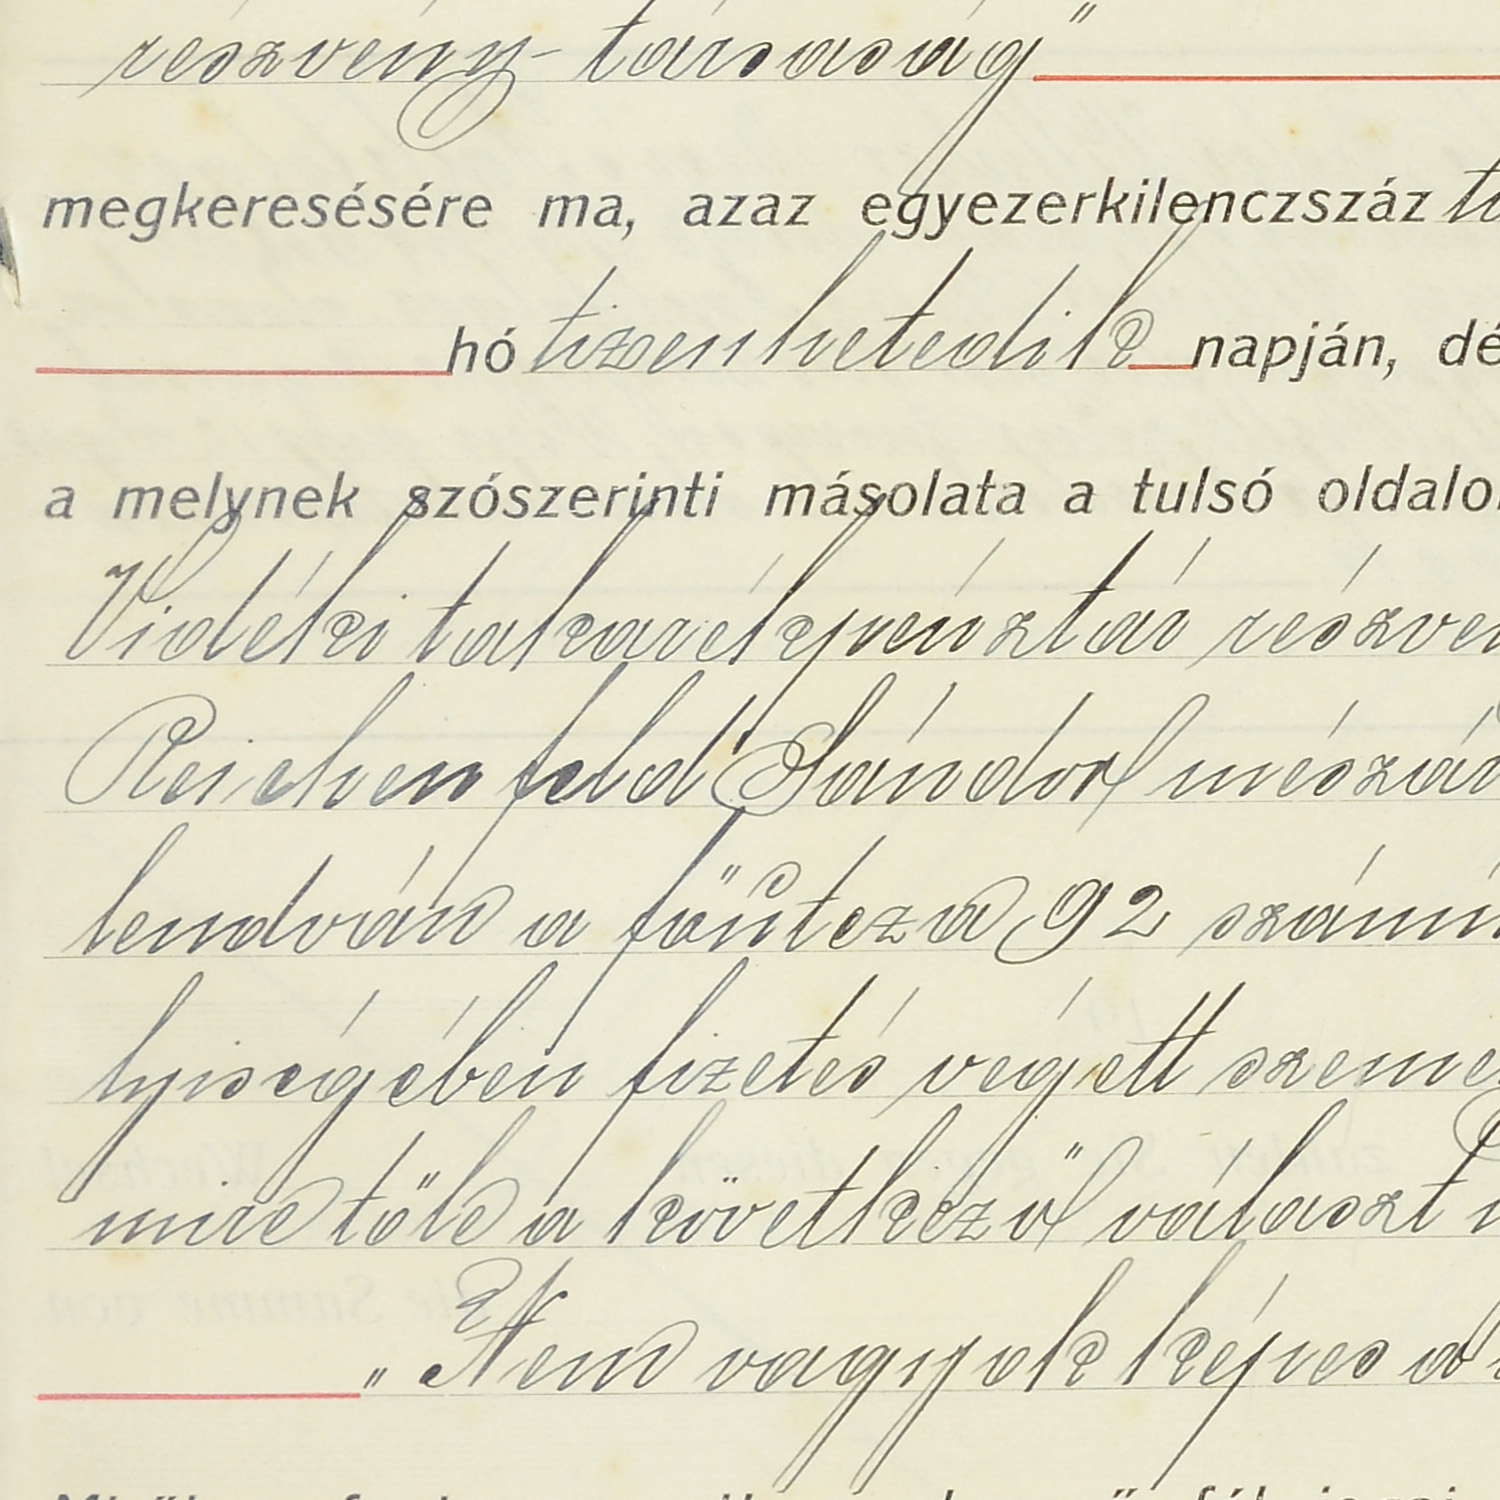 részvény-társaság"
megkeresésére ma, azaz egyezerkilenczszáz
hó tizenhetedik napján, dé
a melynek szószerinti másolata a tulsó oldalon
Vidéki takarékpénztár részvén
Reichenfeld Sándor mészár
lendván a főutcza 92 számú
lyiségében fizetés végett szeme
mire tőle a következő választ
„Nem vagyok képes a